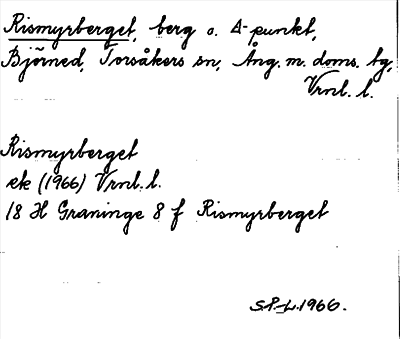 Rismyrberget, berg o. Δ-punkt,
Björned, Torsåkers sn, Ång. m. doms. tg,
Vrnl. l.
Rismyrberget
ek (1966) Vrnl. l.
18 H Graninge 8 f Rismyrberget
S.P.-L. 1966.